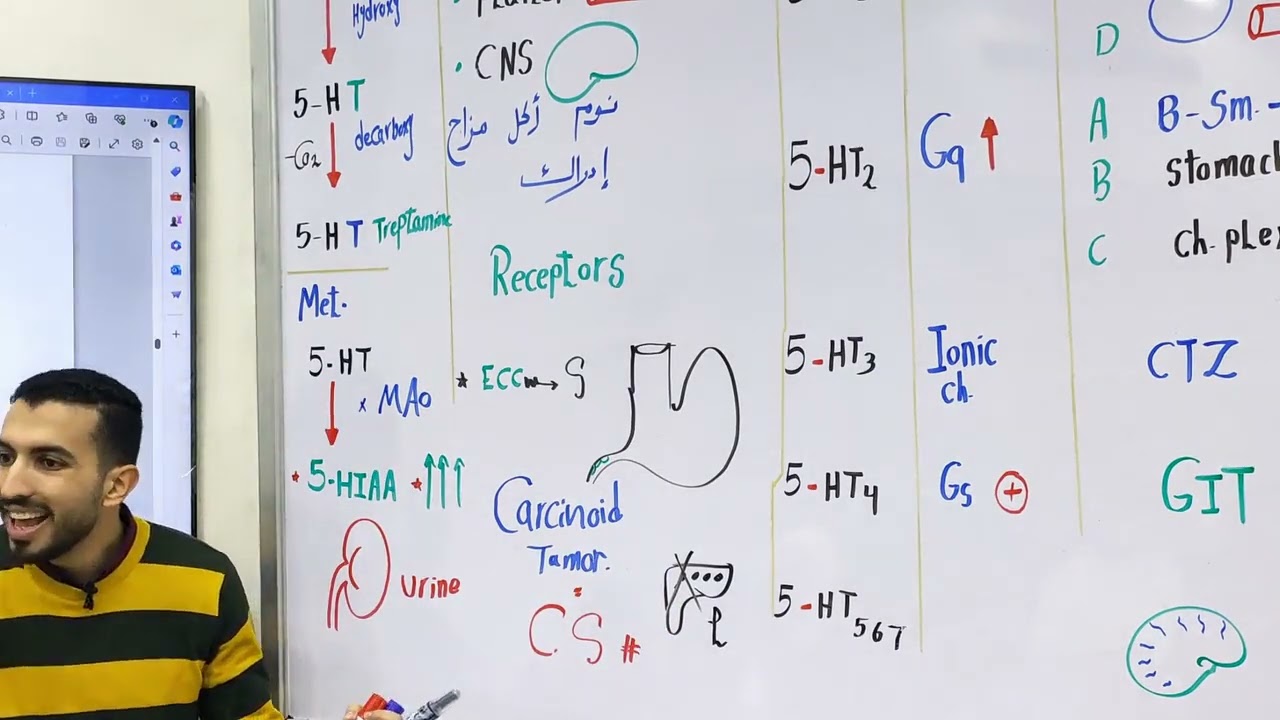 Hydroxy
5-HT
-CO2
decarboxy
5-HT Treptamine
Met.
5-HT
x MAO
* 5-HIAA *↑↑↑
urine
• CNS
نوم أكل مزاج
إدراك
Receptors
* ECC → S
Carcinoid
Tamor.
CS #
5-HT2
Gq ↑
5-HT3
Ionic
ch.
5-HT4
Gs +
5-HT567
D
A B-Sm.-
B stomach
C Ch-pLex
CTZ
GIT